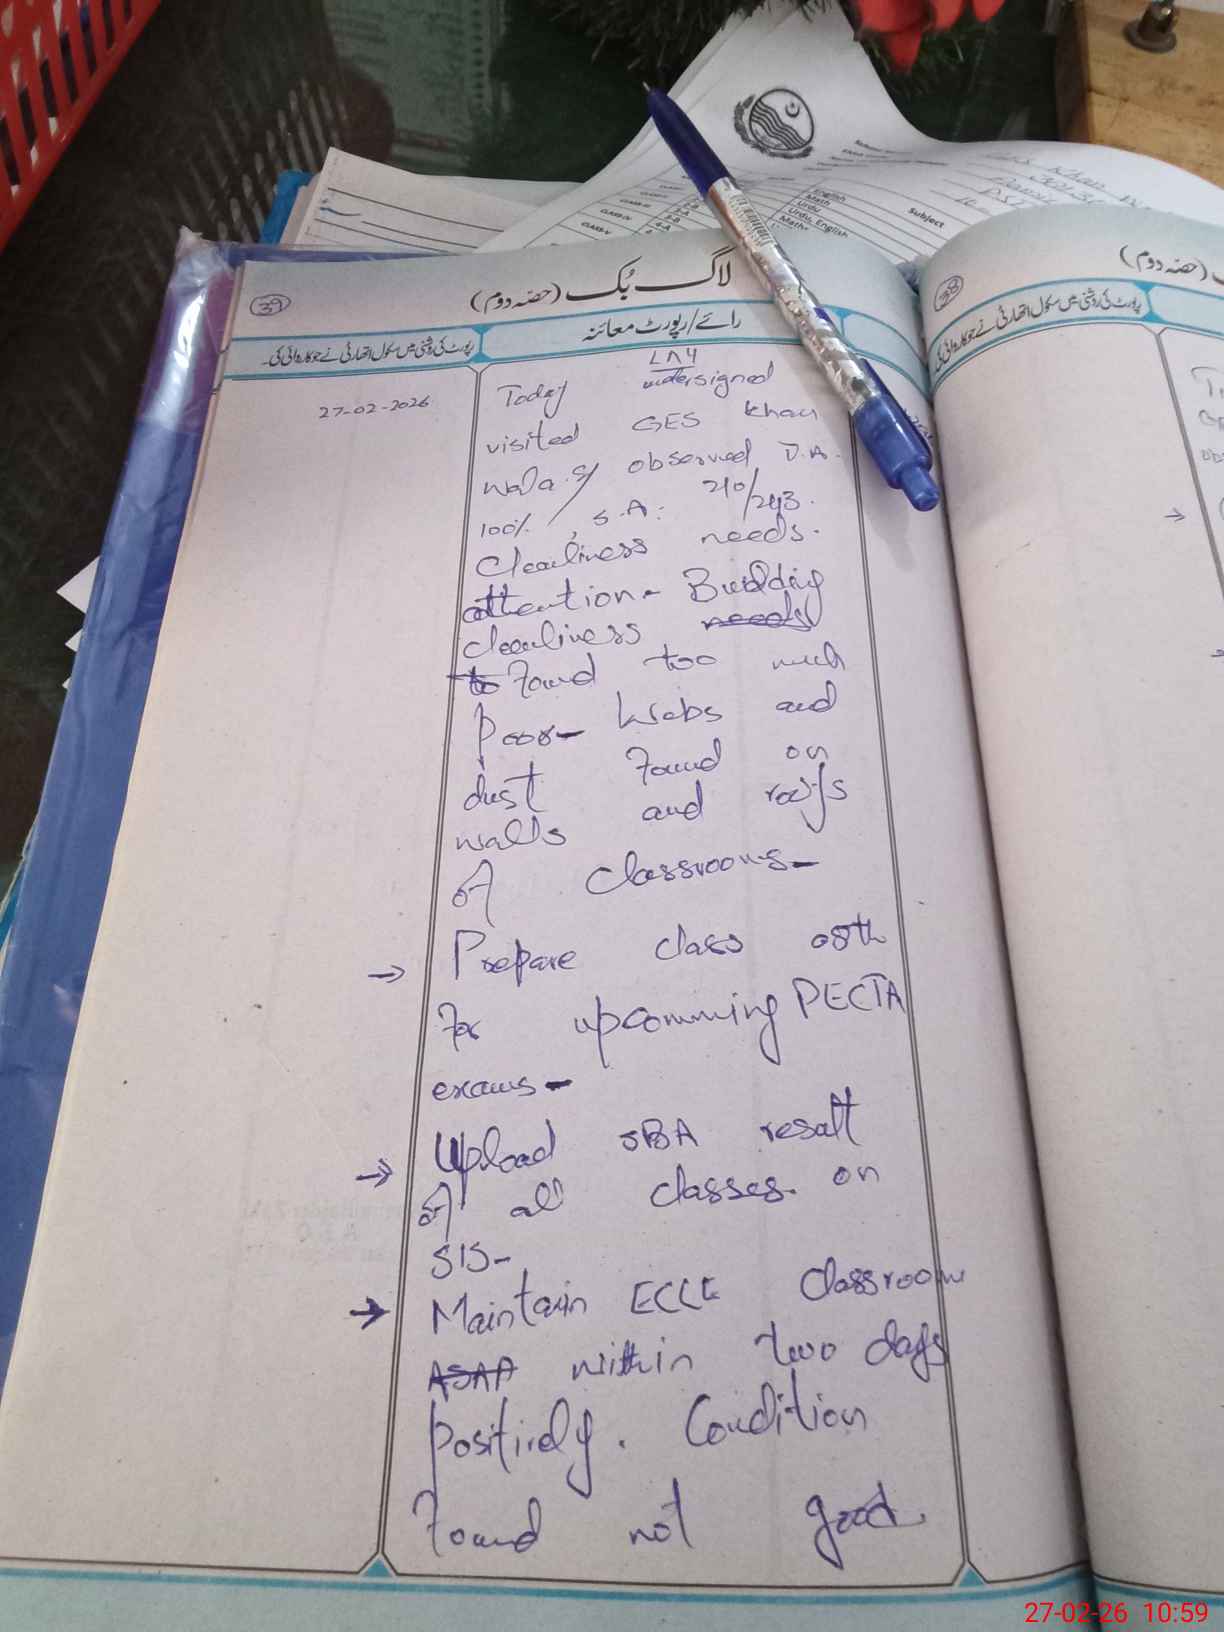 Subject
English
Math
Urdu
Urdu, English
Maths
CLASS-IV
CLASS-V
لاگ بُک (حصّہ دوم)
39
رائے/رپورٹ معائنہ
رپورٹ کی روشنی میں سکول اتھارٹی نے جو کاروائی کی۔
27-02-2026
Today undersigned
visited GES Khan
wala. observed T.A.
100%, S.A: 210/243.
Cleanliness needs.
attention- Building
cleanliness needs
to Found too much
Poor- Webs and
dust Found on
walls and roofs
of classrooms-
→ Prepare class 08th
For upcomming PECTA
exams-
→ Upload SBA result
of all classes. on
SIS-
→ Maintain ECCE Classroom
ASAP within two days
Positively. Condition
Found not good.
(حصّہ دوم)
38
رپورٹ کی روشنی میں سکول اتھارٹی نے جو کاروائی کی
27-02-26 10:59